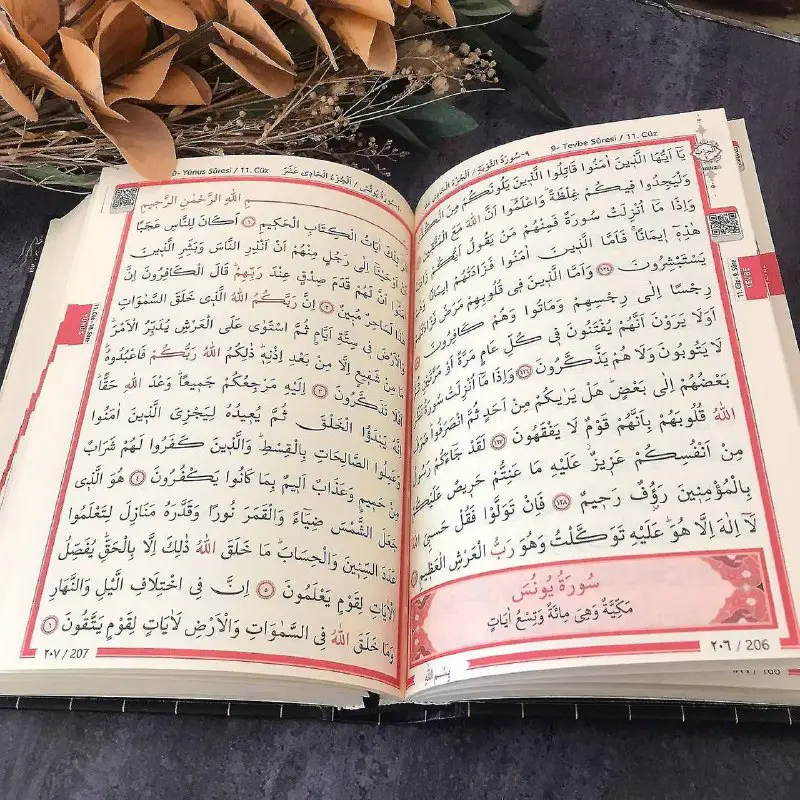 ٩-سُورَةُ التَّوْبَةِ / اَلْجُزْءُ الْحَادِى 9- Tevbe Sûresi / 11. Cüz
يَٓا اَيُّهَا الَّذٖينَ اٰمَنُوا قَاتِلُوا الَّذٖينَ يَلُونَكُمْ مِنَ
وَلْيَجِدُوا فٖيكُمْ غِلْظَةًؕ وَاعْلَمُٓوا اَنَّ اللّٰهَ مَعَ الْمُتَّقٖينَ
وَاِذَا مَٓا اُنْزِلَتْ سُورَةٌ فَمِنْهُمْ مَنْ يَقُولُ اَيُّكُمْ
هٰذِهٖٓ اٖيمَانًاۚ فَاَمَّا الَّذٖينَ اٰمَنُوا فَزَادَتْهُمْ اٖيمَانًا
يَسْتَبْشِرُونَ ﴿١٢٤﴾ وَاَمَّا الَّذٖينَ فٖي قُلُوبِهِمْ مَرَضٌ
رِجْسًا اِلٰى رِجْسِهِمْ وَمَاتُوا وَهُمْ كَافِرُونَ
اَوَلَا يَرَوْنَ اَنَّهُمْ يُفْتَنُونَ فٖي كُلِّ عَامٍ مَرَّةً اَوْ مَرَّتَيْنِ
لَا يَتُوبُونَ وَلَا هُمْ يَذَّكَّرُونَ ﴿١٢٦﴾ وَاِذَا مَٓا اُنْزِلَتْ سُورَةٌ
بَعْضُهُمْ اِلٰى بَعْضٍؕ هَلْ يَرٰيكُمْ مِنْ اَحَدٍ ثُمَّ انْصَرَفُواؕ صَرَفَ
اللّٰهُ قُلُوبَهُمْ بِاَنَّهُمْ قَوْمٌ لَا يَفْقَهُونَ ﴿١٢٧﴾ لَقَدْ جَٓاءَكُمْ رَسُولٌ
مِنْ اَنْفُسِكُمْ عَزٖيزٌ عَلَيْهِ مَا عَنِتُّمْ حَرٖيصٌ عَلَيْكُمْ
بِالْمُؤْمِنٖينَ رَؤُ۫فٌ رَحٖيمٌ ﴿١٢٨﴾ فَاِنْ تَوَلَّوْا فَقُلْ حَسْبِيَ اللّٰهُ
لَٓا اِلٰهَ اِلَّا هُوَؕ عَلَيْهِ تَوَكَّلْتُ وَهُوَ رَبُّ الْعَرْشِ الْعَظٖيمِ
سُورَةُ يُونُسَ
مَكِّيَّةٌ وَهِيَ مِائَةٌ وَتِسْعُ اٰيَاتٍ
٢٠٦ / 206
بِسْمِ اللّٰهِ
TEVBE
10- Yûnus Sûresi / 11. Cüz ١٠-سُورَةُ يُونُسَ / اَلْجُزْءُ الْحَادِى عَشَرَ
اللّٰهِ الرَّحْمٰنِ الرَّحٖيمِ
تِلْكَ اٰيَاتُ الْكِتَابِ الْحَكٖيمِ ﴿١﴾ اَكَانَ لِلنَّاسِ عَجَبًا
اَوْحَيْنَٓا اِلٰى رَجُلٍ مِنْهُمْ اَنْ اَنْذِرِ النَّاسَ وَبَشِّرِ الَّذٖينَ
اٰمَنُٓوا اَنَّ لَهُمْ قَدَمَ صِدْقٍ عِنْدَ رَبِّهِمْؕ قَالَ الْكَافِرُونَ اِنَّ
هٰذَا لَسَاحِرٌ مُبٖينٌ ﴿٢﴾ اِنَّ رَبَّكُمُ اللّٰهُ الَّذٖي خَلَقَ السَّمٰوَاتِ
وَالْاَرْضَ فٖي سِتَّةِ اَيَّامٍ ثُمَّ اسْتَوٰى عَلَى الْعَرْشِ يُدَبِّرُ الْاَمْرَؕ
مَا مِنْ شَفٖيعٍ اِلَّا مِنْ بَعْدِ اِذْنِهٖؕ ذٰلِكُمُ اللّٰهُ رَبُّكُمْ فَاعْبُدُوهُؕ
اَفَلَا تَذَكَّرُونَ ﴿٣﴾ اِلَيْهِ مَرْجِعُكُمْ جَمٖيعًاؕ وَعْدَ اللّٰهِ حَقًّاؕ
اِنَّهُ يَبْدَؤُا الْخَلْقَ ثُمَّ يُعٖيدُهُ لِيَجْزِيَ الَّذٖينَ اٰمَنُوا
وَعَمِلُوا الصَّالِحَاتِ بِالْقِسْطِؕ وَالَّذٖينَ كَفَرُوا لَهُمْ شَرَابٌ
مِنْ حَمٖيمٍ وَعَذَابٌ اَلٖيمٌ بِمَا كَانُوا يَكْفُرُونَ ﴿٤﴾ هُوَ الَّذٖي
جَعَلَ الشَّمْسَ ضِيَٓاءً وَالْقَمَرَ نُورًا وَقَدَّرَهُ مَنَازِلَ لِتَعْلَمُوا
عَدَدَ السِّنٖينَ وَالْحِسَابَؕ مَا خَلَقَ اللّٰهُ ذٰلِكَ اِلَّا بِالْحَقِّۚ يُفَصِّلُ
الْاٰيَاتِ لِقَوْمٍ يَعْلَمُونَ ﴿٥﴾ اِنَّ فٖي اخْتِلَافِ الَّيْلِ وَالنَّهَارِ
وَمَا خَلَقَ اللّٰهُ فِي السَّمٰوَاتِ وَالْاَرْضِ لَاٰيَاتٍ لِقَوْمٍ يَتَّقُونَ ﴿٦﴾
٢٠٧ / 207